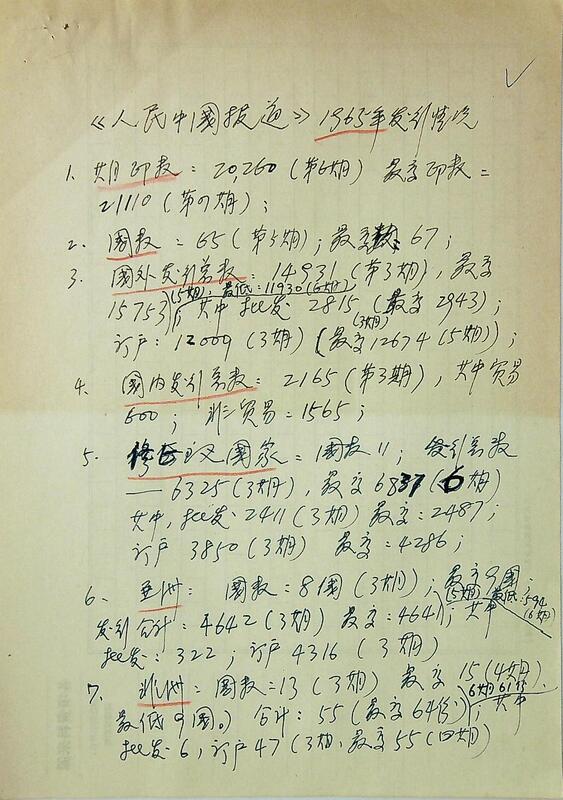 《人民中國报道》1965年发引情况
1、期印数：20,260（第6期） 最高印数：
21110（第9期）；
2、國数：65（第5期）；最高数：67；
3、國外发引总数：14931（第3期），最高
15753（5期，最低：11930（6期）），其中批发 2815（最高 2943）；
订户：12009（3期）（最高12674（5期））；（3期）
4、國内发引总数：2165（第3期），其中贸易
600；非贸易：1565；
5、修正主义國家：國数 11； 发引总数
——6325（3期），最高 6837（6期）
其中，批发：2411（3期）最高：2487；
订户 3850（3期） 最高：4286；
6、亚洲： 國数：8個（3期）；最高9國；
发引合计：4642（3期）最高：4641（5期，最低：594（6期））；其中
批发：322；订户 4316（3期）
7、非洲：國数：13（3期） 最高 15（4期）
最低9國。） 合计：55（最高64份）（6期61份）；其中
批发6，订户47（3期、最高55（四期）